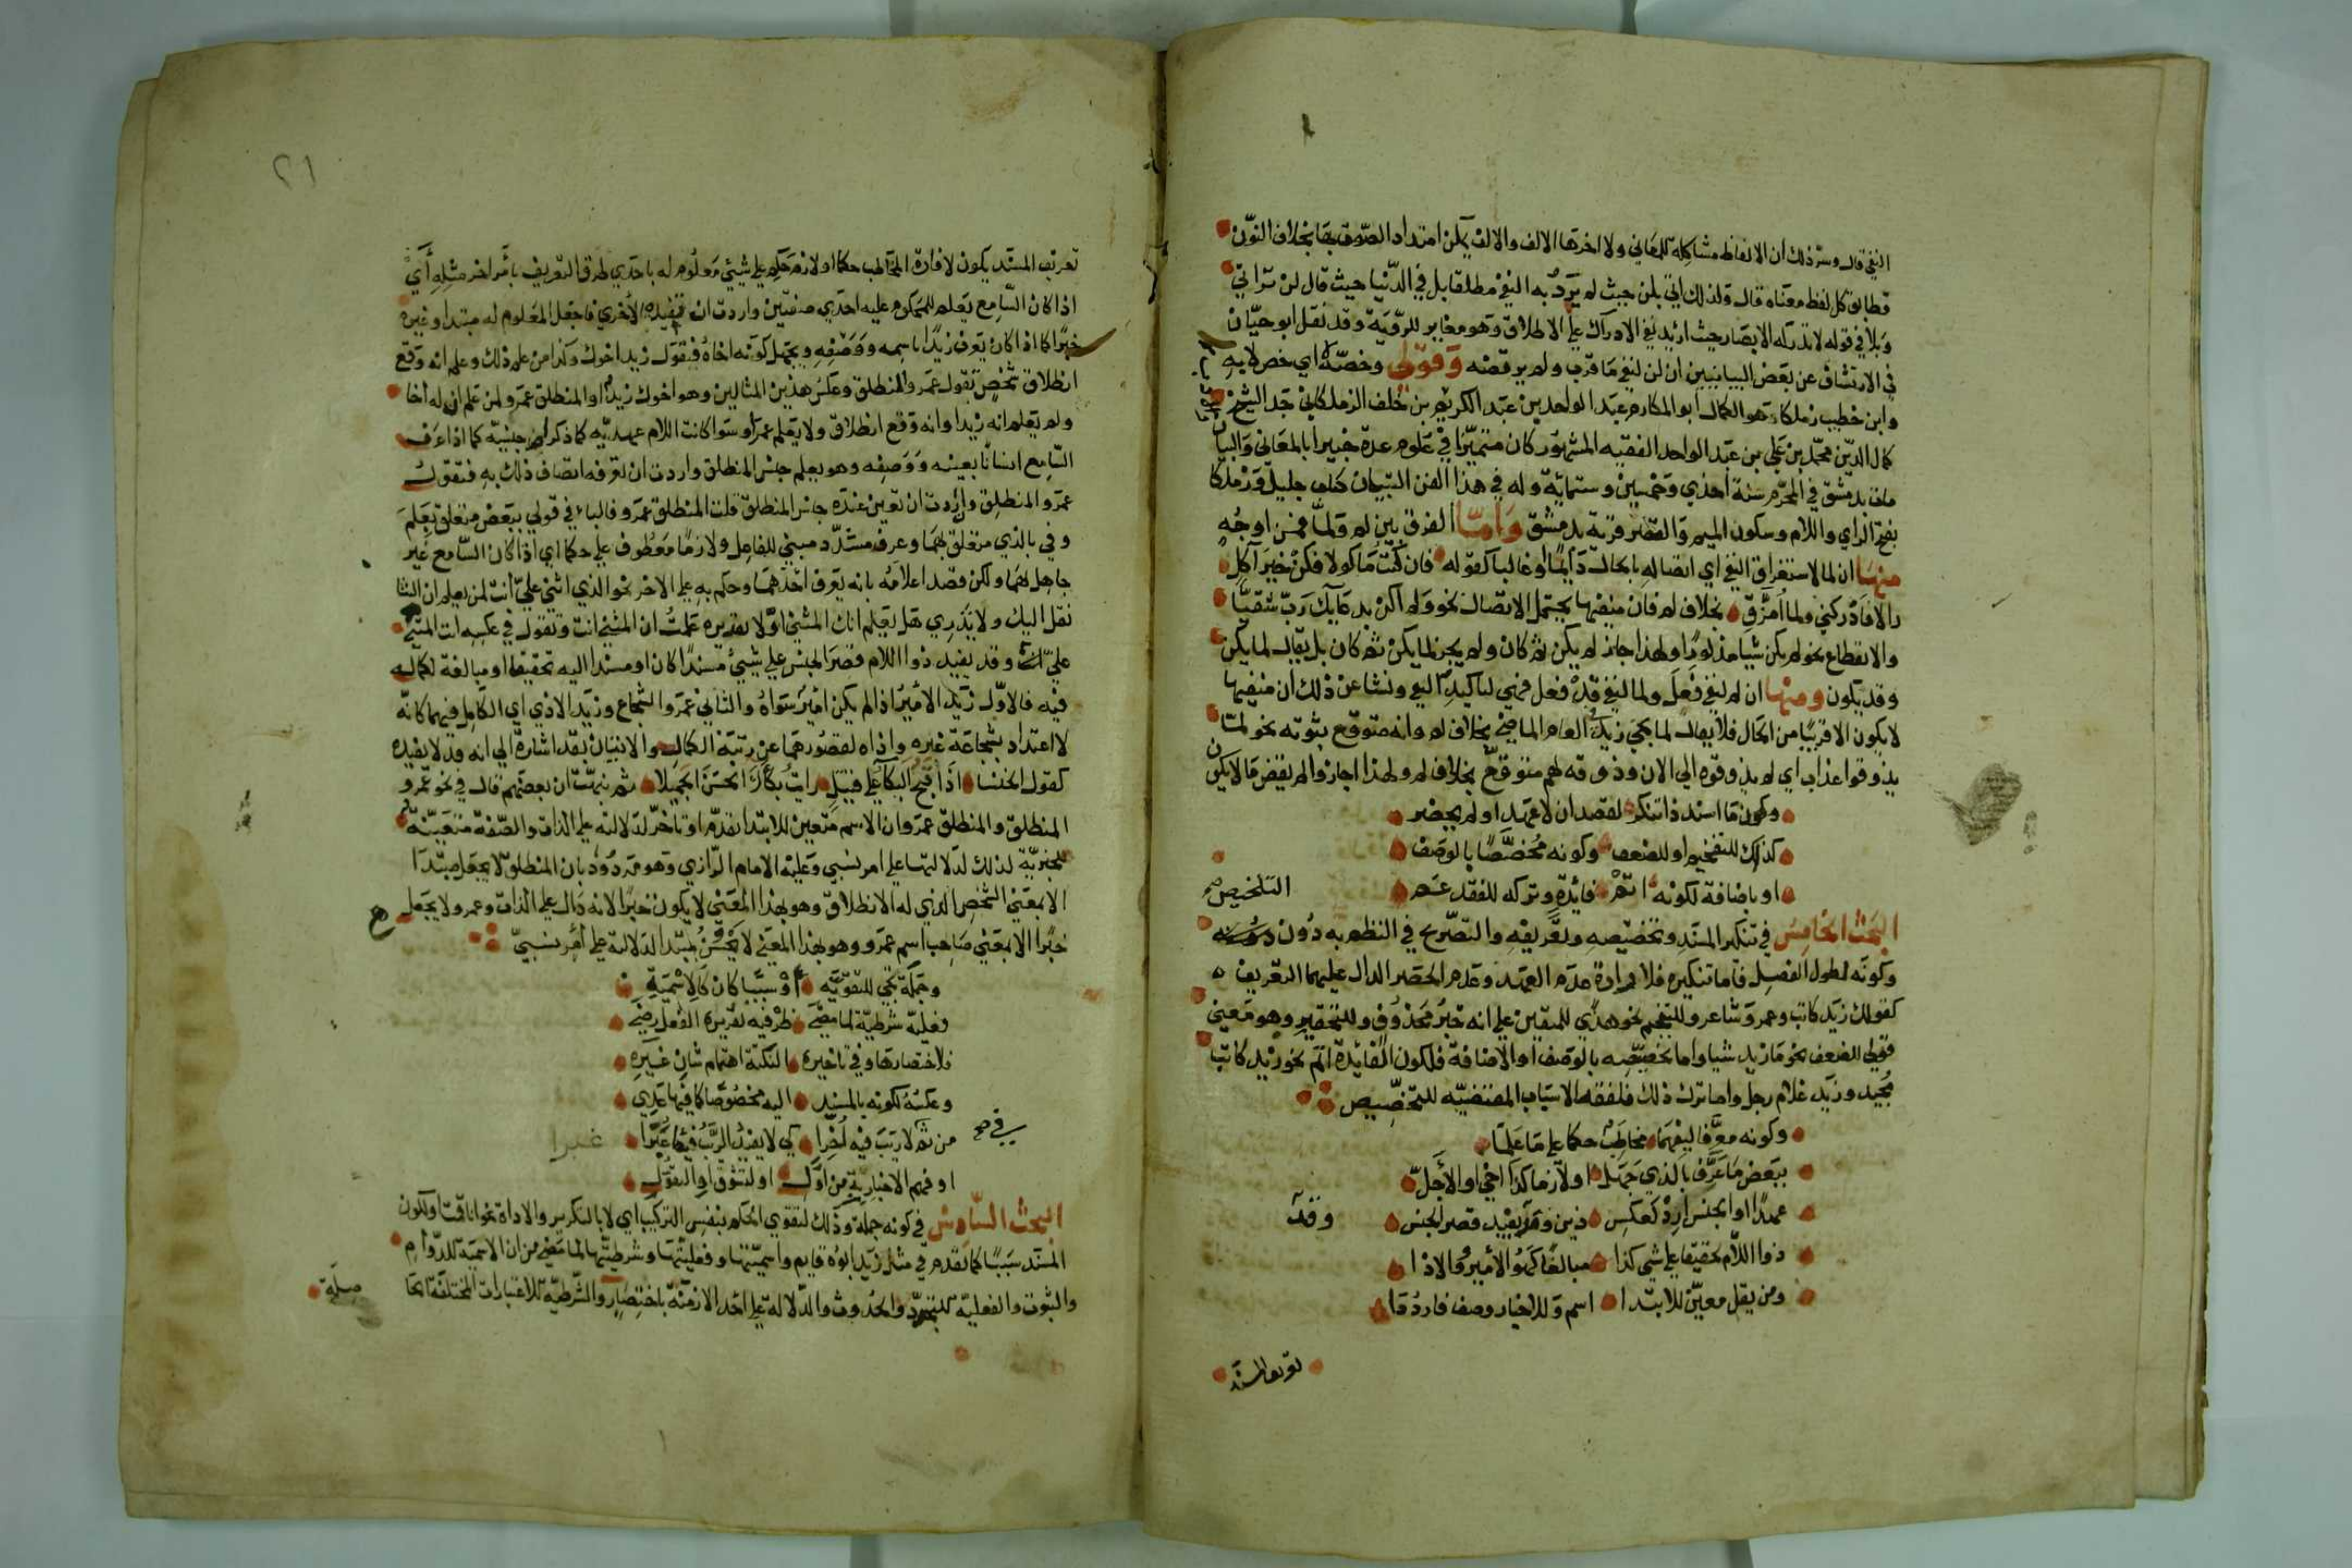 النفي قال وسر ذلك ان الالفاظ مشاكلة للمعاني ولا اخرها الالف والالف يمكن امتداد الصوت بها بخلاف النون
فطابق كل لفظ معناه قال ولذلك اتى بلن حيث لم يرد به النفي مطلقا بل في الدنيا حيث قال لن تراني
وبلا في قوله لا تدركه الابصار حيث اريد نفي الادراك على الاطلاق وهو مغاير للرؤية وقد نقل ابو حيان
في الارتشاف عن بعض البيانيين ان لن لنفي ما قرب ولم يرتضه وقولي وخصه اي خص لا به
وابن خطيب زملكا هو الكمال ابو المكارم عبد الواحد بن عبد الكريم بن خلف الزملكاني جد الشيخ
كمال الدين محمد بن علي بن عبد الواحد الفقيه المشهور كان متميزا في علوم عدة خبيرا بالمعاني والبيان
مات بدمشق في المحرم سنة احدى وخمسين وستماية وله في هذا الفن التبيان كتاب جليل وزملكا
بفتح الزاي واللام وسكون الميم والقصر قرية بدمشق واما الفرق بين لم ولما فمن اوجه
منها ان لما لاستغراق النفي اي اتصاله بالحال دايما او غالبا كقوله فان كنت ماكولا فكن خير آكل
والا فادركني ولما امزق بخلاف لم فان منفيها يحتمل الاتصال نحو ولم اكن بدعايك رب شقيا
والانقطاع نحو لم يكن شيا مذكورا ولهذا جاز لم يكن ثم كان ولم يجز لما يكن ثم كان بل يقال لما يكن
وقد يكون ومنها ان لم لنفي فعل ولما لنفي قد فعل فهي لتاكيد النفي ونشا عن ذلك ان منفيها
لا يكون الا قريبا من الحال فلا يقال لما يجئ زيد العام الماضي بخلاف لم وانه متوقع ثبوته نحو لما
يذوقوا عذاب اي لم يذوقوه الى الان وذوقه لهم متوقع بخلاف لم ولهذا اجازوا لم يقض ما لا يكون
وكون ما اسند ذا تنكر لقصد ان لا عهد او لم يحصر
كذلك للتفخيم او للضعف وكونه مخصصا بالوصف
او باضافة لكونه اتم فائدة وتركه للفقد عم
التلخيص
البحث الخامس في تنكير المسند وتخصيصه وتعريفه والتصريح في النظم به دون
وكونه لطول الفصل فاما تنكيره فلارادة عدم العهد وعدم الحصر الدال عليهما التعريف
كقولك زيد كاتب وعمرو شاعر وللتفخيم نحو هدى للمتقين على انه خبر محذوف وللتحقير وهو معنى
قولي للضعف نحو ما زيد شيا واما تخصيصه بالوصف او الاضافة فلكون الفائدة اتم نحو زيد كاتب
مجيد وزيد غلام رجل واما ترك ذلك فلفقد الاسباب المقتضيه للتخصيص
وكونه معرفا ليفهما مخاطب حكما على ما علما
ببعض ما عرف بالذي جهل او لازما كذا اخي او الاجل
عهدا او الجنس ارد كعكس ذين وقد يفيد قصر الجنس
وقد
ذو اللام تحقيقا على شي كذا مبالغا كهو الامير والاذا
ومن يقل معين للابتدا اسم وللاخبار وصف فارددا
تعريف المسند
٢١
تعريف المسند يكون لافادة المخاطب حكما او لازم حكم على شيئ معلوم له باحدى طرق التعريف بامر اخر مثله اي
اذا كان السامع يعلم للمحكوم عليه احدى صفتين واردت ان تفيده الاخرى فاجعل المعلوم له مبتدا وغيره
خبرا كما اذا كان يعرف زيدا باسمه ووصفه ويجهل كونه اخاه فيقول زيد اخوك وكذا من علم ذلك وعلم انه وقع
انطلاق شخص تقول عمرو المنطلق وعكس هذين المثالين وهو اخوك زيد او المنطلق عمرو لمن علم ان له اخا
ولم يعلم انه زيد او انه وقع انطلاق ولا يعلم عمرا وسوا كانت اللام عهديه كما ذكر ام جنسيه كما اذا عرف
السامع انسانا بعينه ووصفه وهو يعلم جنس المنطلق واردت ان تعرفه اتصاف ذلك به فتقول
عمرو المنطلق وان اردت ان تعين عنده جنس المنطلق قلت المنطلق عمرو فالباء في قولي ببعض متعلق بعلم
وفي بالذي متعلق بفهما وعرف مشدد مبني للفاعل ولازما معطوف على حكما اي اذا كان السامع غير
جاهل بهما ولكن قصد اعلامه بانه يعرف احدهما وحكم به على الاخر نحو الذي اثنى علي انت لمن يعلم ان الثنا
نقل اليك ولا يدري هل تعلم انك المثني او لا تقديره علمت ان المثني انت وتقول في عكسه انت المثني
علي وقد يفيد ذو اللام قصر الجنس على شيئ مسندا كان او مسندا اليه تحقيقا او مبالغة لكماله
فيه فالاول زيد الامير اذا لم يكن امير سواه والثاني عمرو الشجاع وزيد الاذي اي الكامل فيهما كانه
لا اعتداد بشجاعة غيره واذاه لقصورهما عن رتبة الكمال والاتيان بقد اشارة الى انه قد لا يفيده
كقول الخنسا اذا قبح البكا على قتيل رايت بكاءك الحسن الجميلا ثم نبهت ان بعضهم قال في نحو عمرو
المنطلق والمنطلق عمرو ان الاسم متعين للابتدا تقدم او تاخر لدلالته على الذات والصفة متعينة
للخبرية لذلك لدلالتها على امر نسبي وعليه الامام الرازي وهو مردود بان المنطلق لا يجعل مبتدا
الا بمعنى الشخص الذي له الانطلاق وهو بهذا المعنى لا يكون خبرا لانه دال على الذات وعمرو لا يجعل
خبرا الا بمعنى صاحب اسم عمرو وهو بهذا المعنى لا يحسن مبتدا لدلالته على امر نسبي
وجملة تجي للتقويه او سببا كان كالاسمية
فعلية شرطية لما مضى ظرفيه تقديره الفعل رضي
فلاختصارها وفي تاخيره النكتة اهتمام شان غيره
وعكسه لكونه بالمسند اليه مخصوصا كما فيها بدي
من ثم لا ريب فيه اخرا كي لا يفيد الريب فيما غبرا
غبرا
او فهم الاخبار به من اول او لتشوق او التفول
البحث السادس في كونه جملة وذلك لتقوي الحكم بنفس التركيب اي لا بالتكرير والاداة نحو انا قمت او لكون
المسند سببا كما تقدم في مثل زيد ابوه قايم واسميتها وفعليتها وشرطيتها لما مضى من ان الاسمية للدوام
والثبوت والفعلية للتجدد والحدوث والدلالة على احد الازمنة باختصار والشرطية للاعتبارات المختلفة الحا
صلة